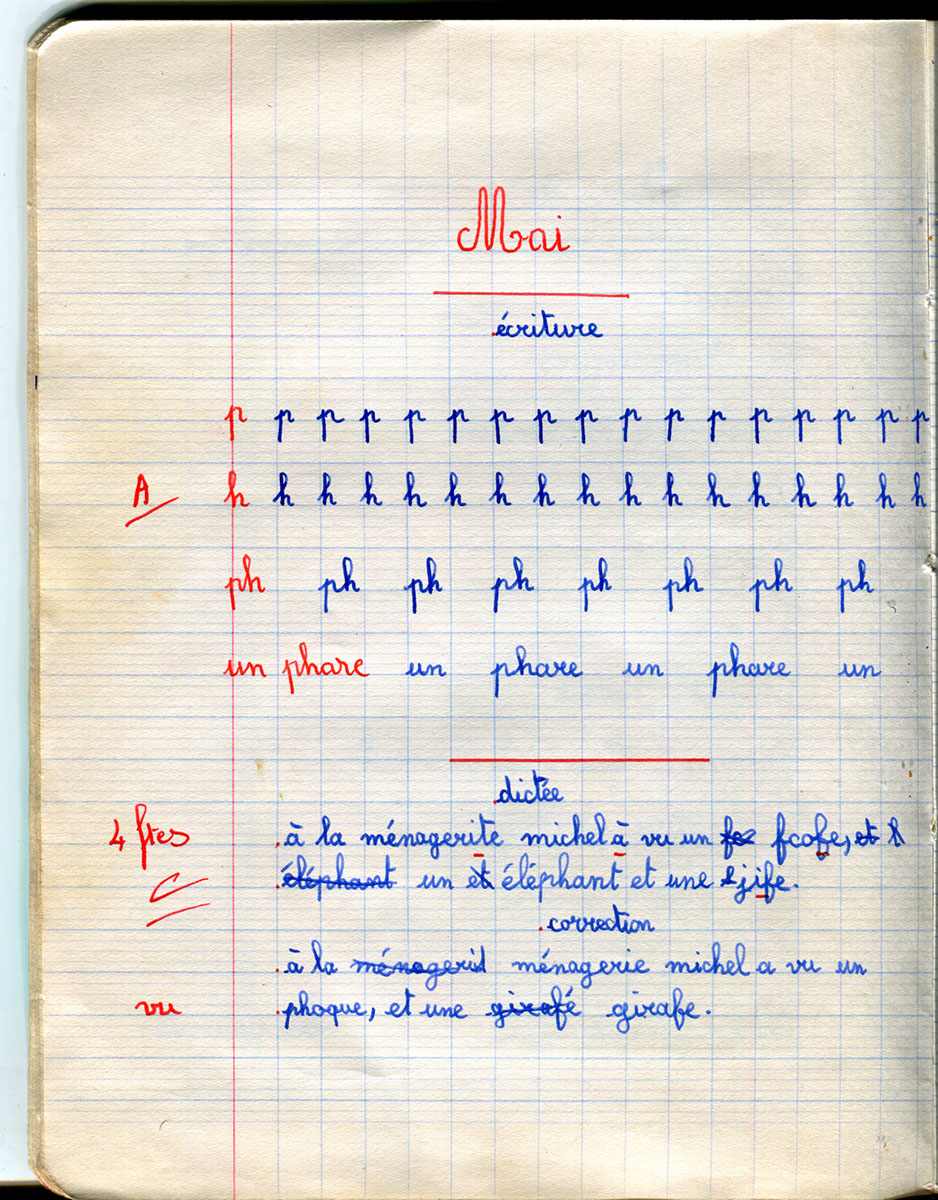 Mai
écriture
p p p p p p p p p p p p p p p p p
A h h h h h h h h h h h h h h h h h
ph ph ph ph ph ph ph ph
un phare un phare un phare un
dictée
4 ftes à la ménagerite michel à vu un fcofe, et
C éléphant un et éléphant et une jife.
correction
à la ménagerid ménagerie michel a vu un
vu phoque, et une girafé girafe.